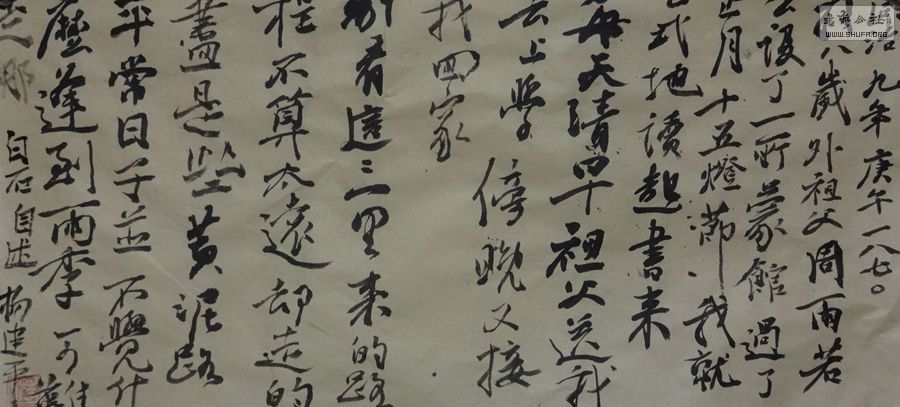 治九年庚午一八七〇
八歲外祖父周雨若
設了一所蒙館過了
正月十五燈節我就
式地讀起書來
每天清早祖父送我
去上學傍晚又接
我回家
別看這三里來的路
程不算太遠却走的
盡是些黄泥路
平常日子並不覺什
麼逢到雨季可難
白石自述楊建平
書法公社
WWW.SHUFA.ORG